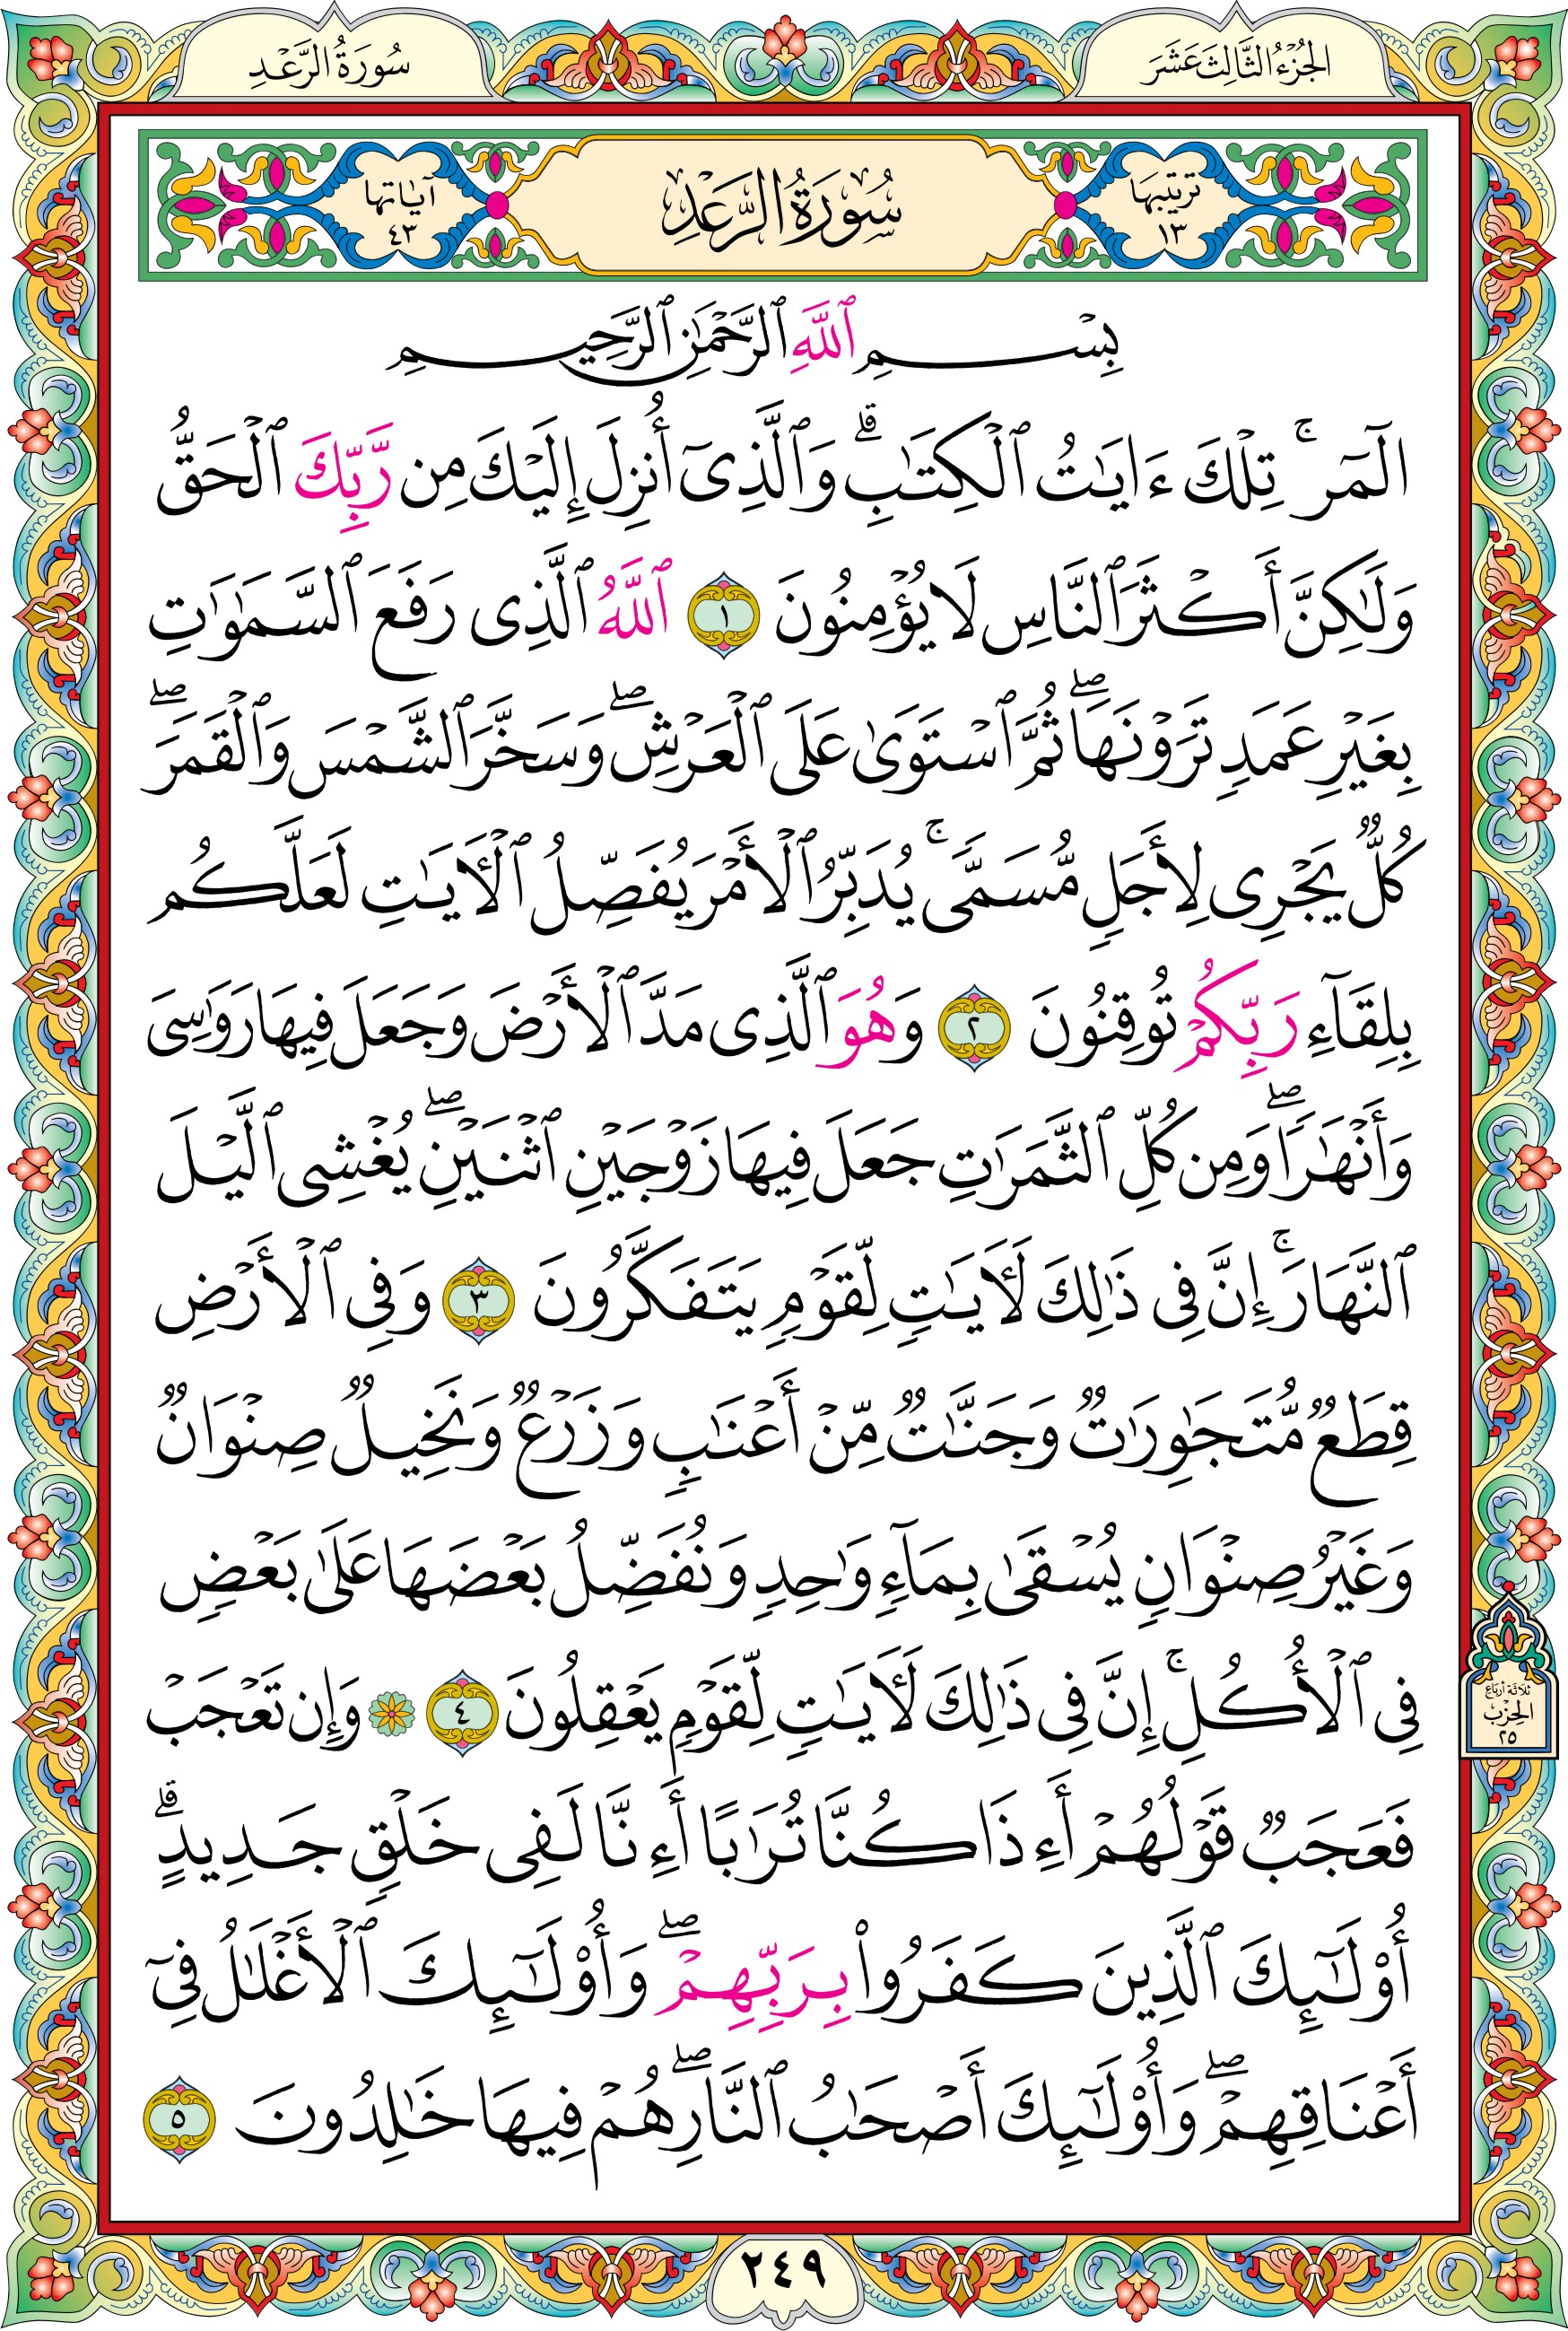 الجُزْءُ الثَّالِثَ عَشَرَ
سُورَةُ الرَّعْدِ
تَرتِيبُهَا
١٣
سُورَةُ الرَّعْدِ
آيَاتُهَا
٤٣
بِسْمِ ٱللَّهِ ٱلرَّحْمَٰنِ ٱلرَّحِيمِ
الٓمٓر ۚ تِلْكَ ءَايَٰتُ ٱلْكِتَٰبِ ۗ وَٱلَّذِىٓ أُنزِلَ إِلَيْكَ مِن رَّبِّكَ ٱلْحَقُّ
وَلَٰكِنَّ أَكْثَرَ ٱلنَّاسِ لَا يُؤْمِنُونَ ١ ٱللَّهُ ٱلَّذِى رَفَعَ ٱلسَّمَٰوَٰتِ
بِغَيْرِ عَمَدٍ تَرَوْنَهَا ۖ ثُمَّ ٱسْتَوَىٰ عَلَى ٱلْعَرْشِ ۖ وَسَخَّرَ ٱلشَّمْسَ وَٱلْقَمَرَ ۖ
كُلٌّ يَجْرِى لِأَجَلٍ مُّسَمًّى ۚ يُدَبِّرُ ٱلْأَمْرَ يُفَصِّلُ ٱلْأَيَٰتِ لَعَلَّكُم
بِلِقَآءِ رَبِّكُمْ تُوقِنُونَ ٢ وَهُوَ ٱلَّذِى مَدَّ ٱلْأَرْضَ وَجَعَلَ فِيهَا رَوَٰسِىَ
وَأَنْهَٰرًا ۖ وَمِن كُلِّ ٱلثَّمَرَٰتِ جَعَلَ فِيهَا زَوْجَيْنِ ٱثْنَيْنِ ۖ يُغْشِى ٱلَّيْلَ
ٱلنَّهَارَ ۚ إِنَّ فِى ذَٰلِكَ لَأَيَٰتٍ لِّقَوْمٍ يَتَفَكَّرُونَ ٣ وَفِى ٱلْأَرْضِ
قِطَعٌ مُّتَجَٰوِرَٰتٌ وَجَنَّٰتٌ مِّنْ أَعْنَٰبٍ وَزَرْعٌ وَنَخِيلٌ صِنْوَانٌ
وَغَيْرُ صِنْوَانٍ يُسْقَىٰ بِمَآءٍ وَٰحِدٍ وَنُفَضِّلُ بَعْضَهَا عَلَىٰ بَعْضٍ
فِى ٱلْأُكُلِ ۚ إِنَّ فِى ذَٰلِكَ لَأَيَٰتٍ لِّقَوْمٍ يَعْقِلُونَ ٤ ۞ وَإِن تَعْجَبْ
ثَلَاثَة أربَاع
الحِزْب
٢٥
فَعَجَبٌ قَوْلُهُمْ أَءِذَا كُنَّا تُرَٰبًا أَءِنَّا لَفِى خَلْقٍ جَدِيدٍ ۗ
أُو۟لَٰٓئِكَ ٱلَّذِينَ كَفَرُوا۟ بِرَبِّهِمْ ۖ وَأُو۟لَٰٓئِكَ ٱلْأَغْلَٰلُ فِىٓ
أَعْنَاقِهِمْ ۖ وَأُو۟لَٰٓئِكَ أَصْحَٰبُ ٱلنَّارِ ۖ هُمْ فِيهَا خَٰلِدُونَ ٥
٢٤٩